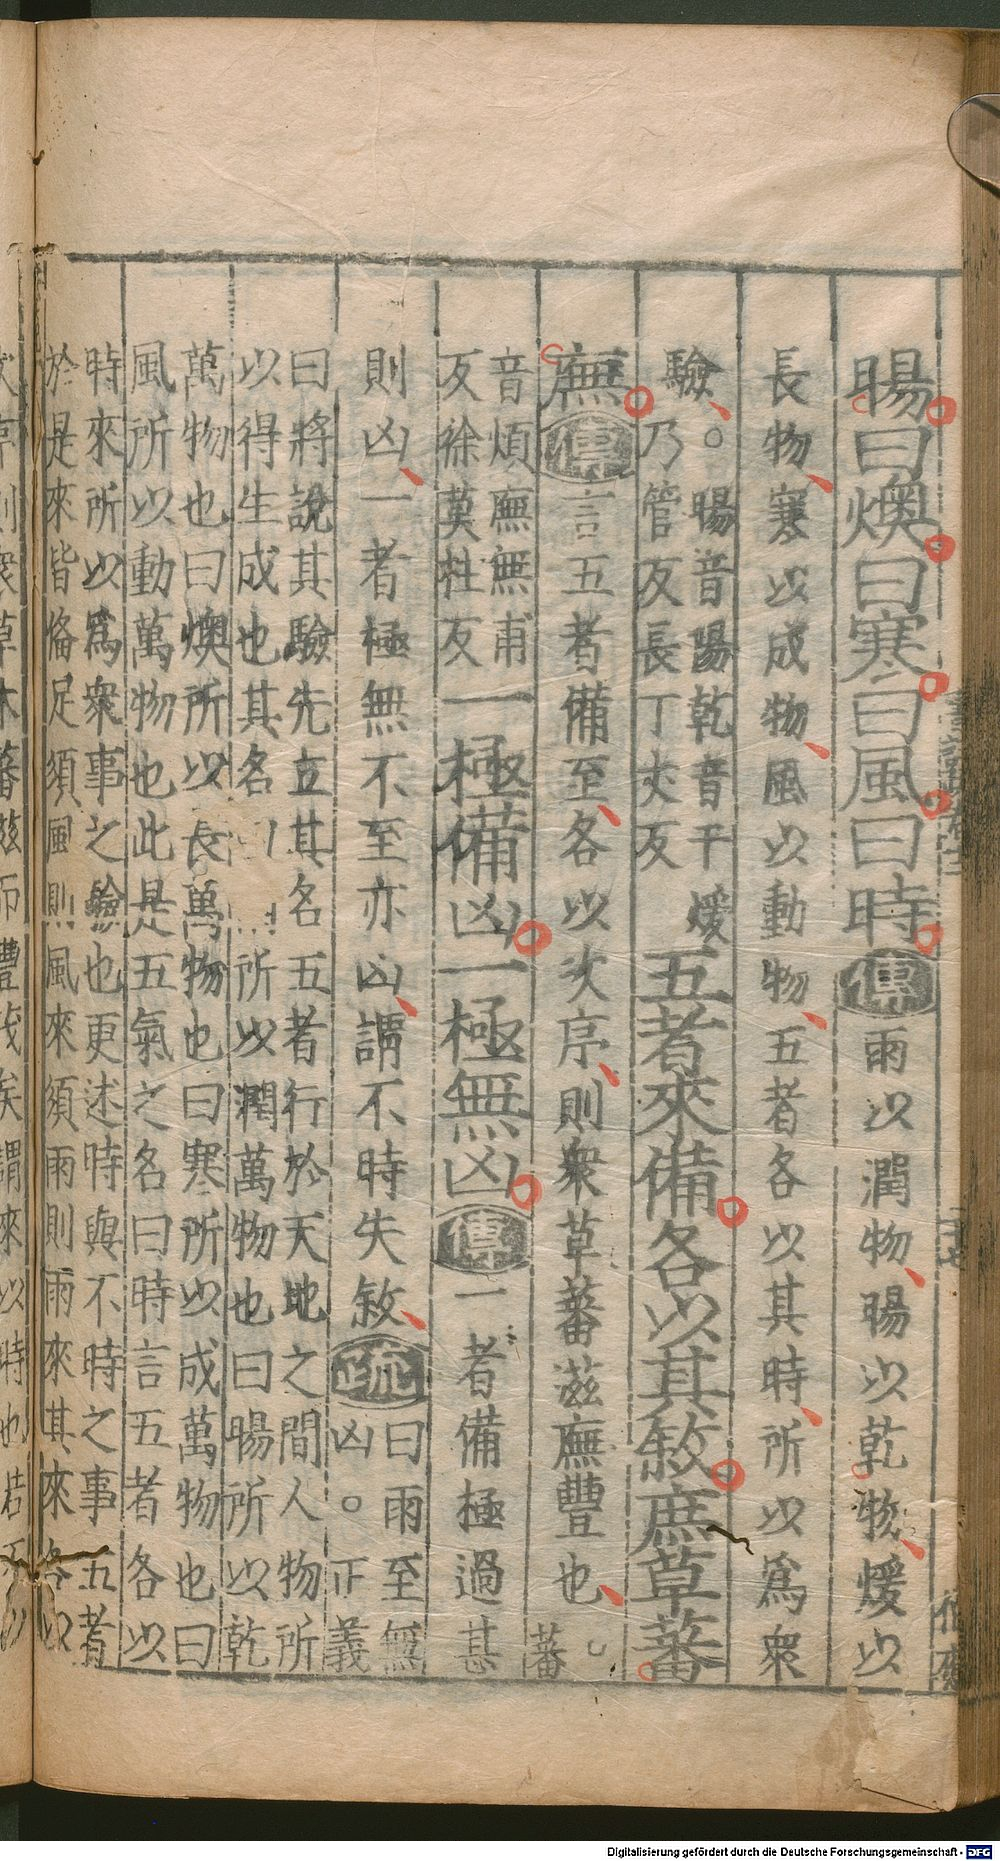 暘曰燠曰寒曰風曰時傳雨以潤物暘以乾物煖以
長物寒以成物風以動物五者各以其時所以爲衆
驗。暘音陽乾音干煖
乃管反長丁丈反
五者來備各以其敘庶草蕃
廡傳言五者備至各以次序則衆草蕃滋廡豐也蕃
音煩廡無甫
反徐莫杜反
一極備凶一極無凶傳一者備極過甚
則凶一者極無不至亦凶謂不時失敘疏
曰雨至無
凶。正義
曰將說其驗先立其名五者行於天地之間人物所
以得生成也其名 所以潤萬物也曰暘所以乾
萬物也曰燠所以長萬物也曰寒所以成萬物也曰
風所以動萬物也此是五氣之名曰時言五者各以
時來所以爲衆事之驗也更述時與不時之事五者
於是來皆備足須風則風來須雨則雨來其來各以
草木蕃滋而豐茂矣謂來以時也若不以
Digitalisierung gefördert durch die Deutsche Forschungsgemeinschaft - DFG